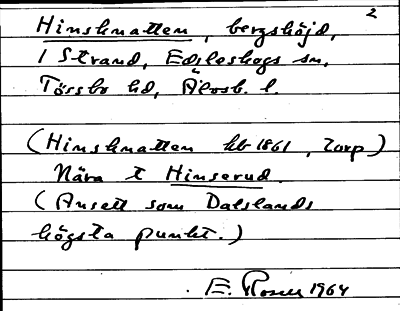 2
Hinsknatten, bergshöjd,
1 Strand, Edsleskogs sn,
Tössbo hd, Älvsb. l.
(Hinsknatten hb 1861, torp)
Nära t Hinserud.
(Ansett som Dalslands
högsta punkt.)
E. Rosell 1964